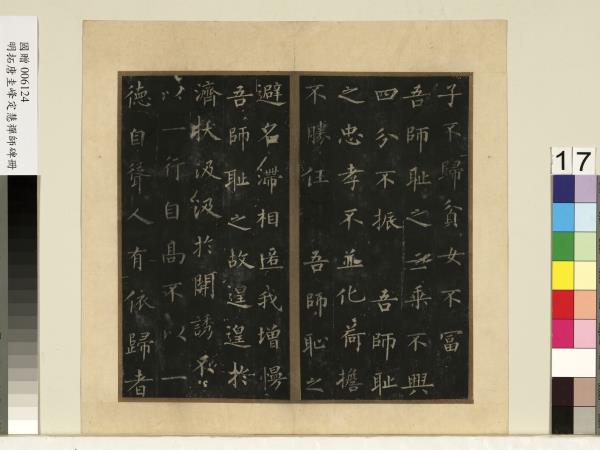 子不歸貧女不冨
吾師耻之三乘不興
四分不振 吾師耻
之忠孝不並化荷擔
不勝任 吾師耻之
避名滯相匿我增慢
吾師耻之故遑遑於
濟拔汲汲於開誘不
以一行自高不以一
德自聳人有依歸者
國贈 006124
明拓唐圭峰定慧禪師碑冊
17